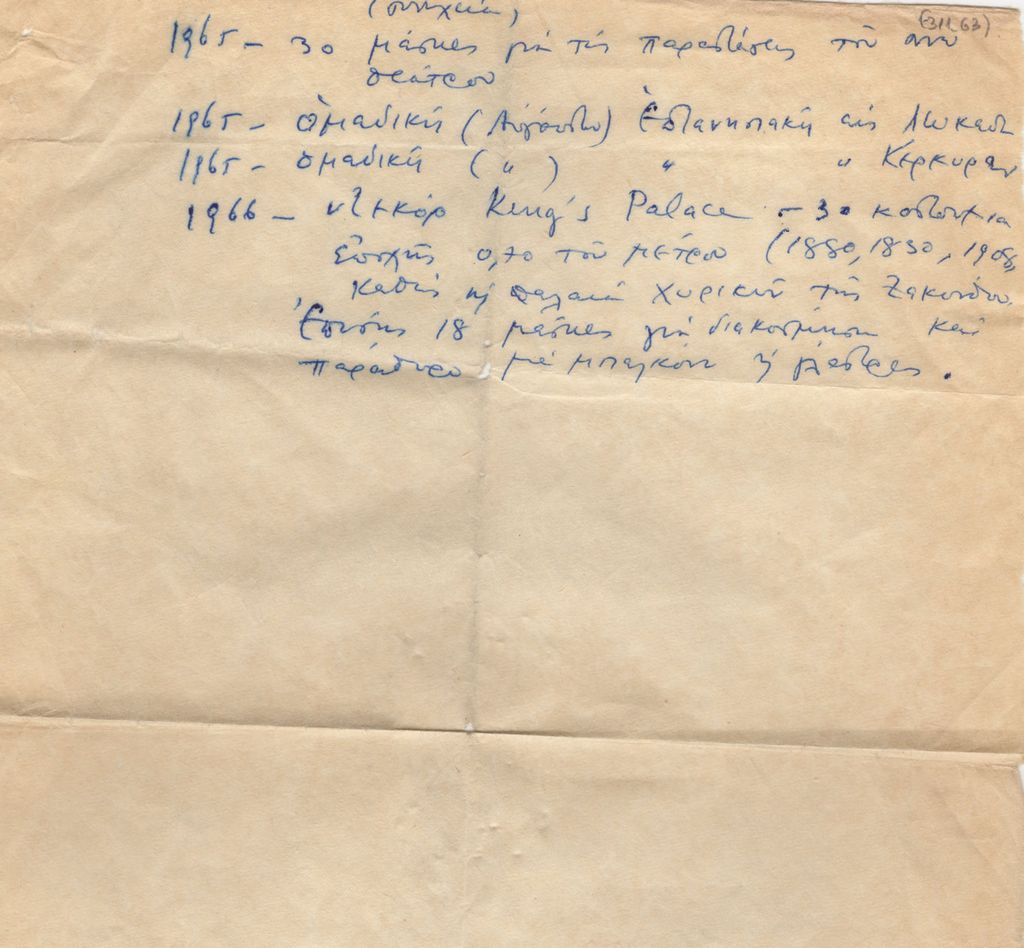 (συνέχεια)
(311,63)
1965 – 30 μάσκες γιά τίς παραστάσεις τοῦ
θεάτρου
1965 – Ὁμαδική (Αὐγούστου) Ἑπτανησιακή εἰς Λευκάδα
1965 – ὁμαδική ( " ) " " Κέρκυραν
1966 – ντεκόρ King's Palace – 30 κοστούμια
Ἐποχῆς 0,70 τοῦ μέτρου (1880, 1830, 1908,
καθώς καί παλαιά χωρική τῆς Ζακύνθου.
Ἐπίσης 18 μάσκες γιά διακόσμηση καί
παράθυρο μέ μπαλκόνι ἤ γλάστρες.